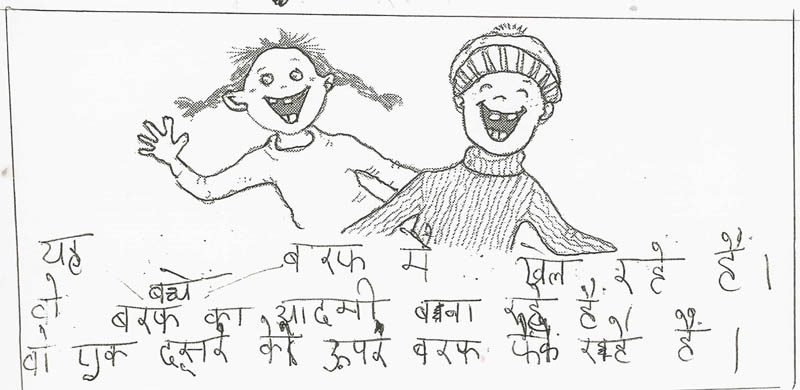 यह बच्चे बरफ मे खेल रहे हैं।
वो बरफ का आदमी बना रहे हैं
वो एक दूसरे के ऊपर बरफ फेंक रहे हैं।